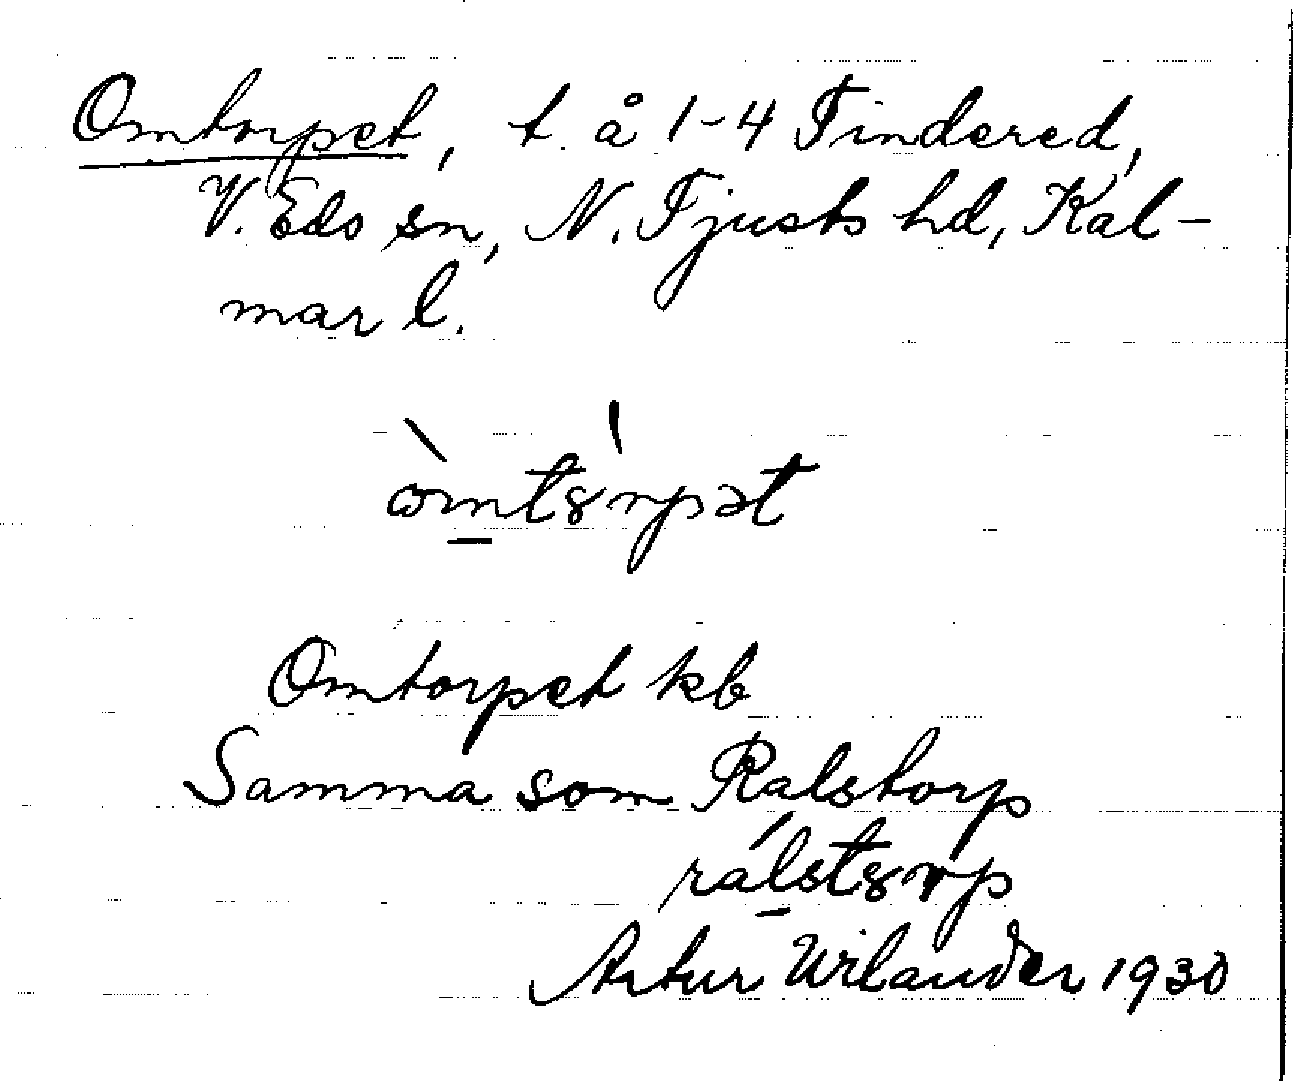 Omtorpet, t. å 1-4 Tindered,
V. Eds sn, N. Tjusts hd, Kal-
mar l.
Omtorpet kb
Samma som Ralstorp
Artur Wilander 1930